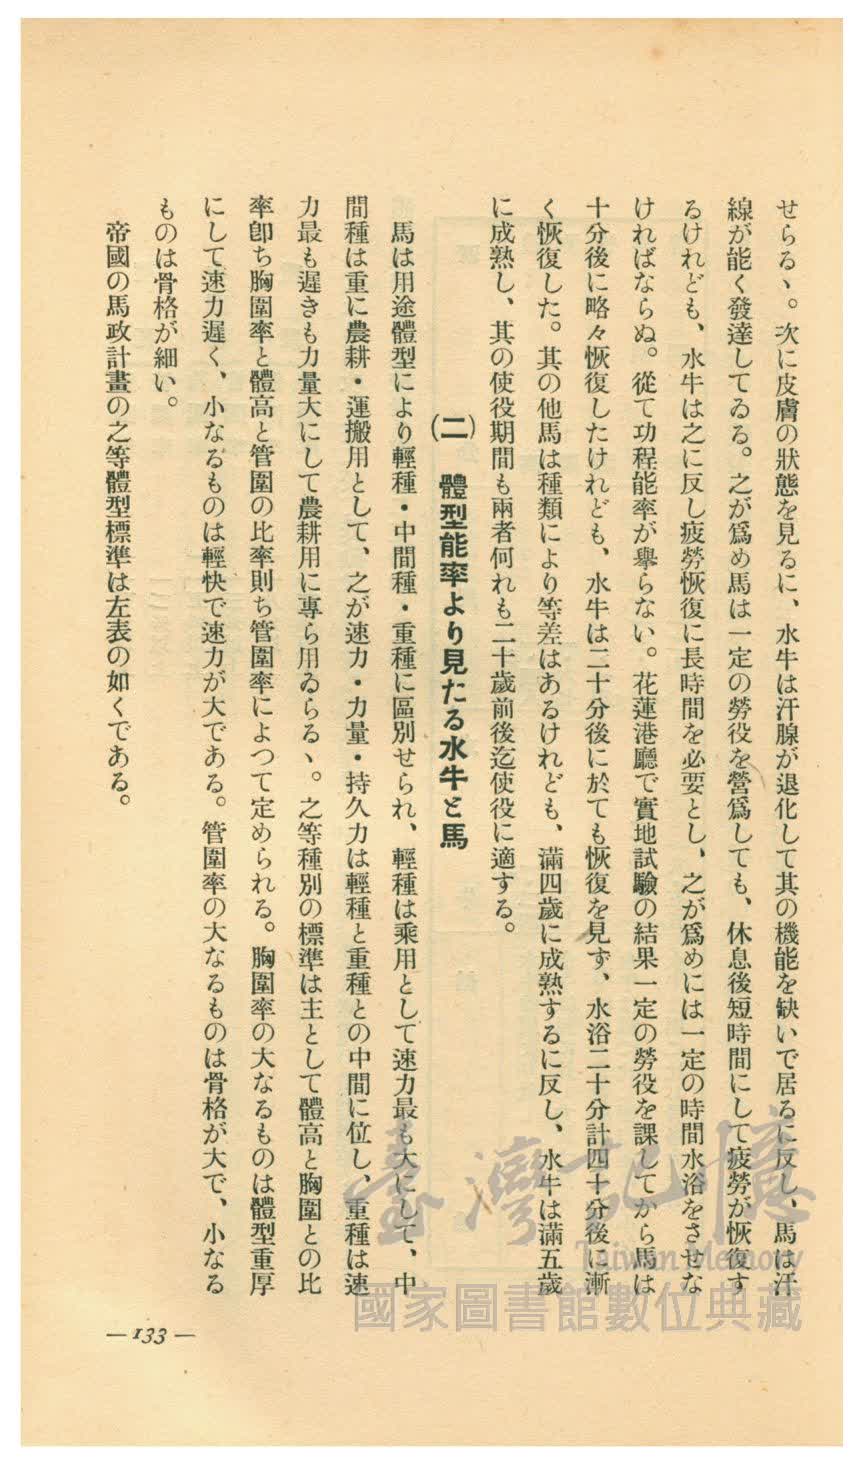 せらるゝ。次に皮膚の狀態を見るに、水牛は汗腺が退化して其の機能を缺いで居るに反し、馬は汗
線が能く發達してゐる。之が爲め馬は一定の勞役を營爲しても、休息後短時間にして疲勞が恢復す
るけれども、水牛は之に反し疲勞恢復に長時間を必要とし、之が爲めには一定の時間水浴をさせな
ければならぬ。從て功程能率が擧らない。花蓮港廳で實地試驗の結果一定の勞役を課してから馬は
十分後に略々恢復したけれども、水牛は二十分後に於ても恢復を見ず、水浴二十分計四十分後に漸
く恢復した。其の他馬は種類により等差はあるけれども、滿四歲に成熟するに反し、水牛は滿五歲
に成熟し、其の使役期間も兩者何れも二十歲前後迄使役に適する。
(二) 體型能率より見たる水牛と馬
馬は用途體型により輕種・中間種・重種に區別せられ、輕種は乘用として速力最も大にして、中
間種は重に農耕・運搬用として、之が速力・力量・持久力は輕種と重種との中間に位し、重種は速
力最も遲きも力量大にして農耕用に專ら用ゐらるゝ。之等種別の標準は主として體高と胸圍との比
率卽ち胸圍率と體高と管圍の比率則ち管圍率によつて定められる。胸圍率の大なるものは體型重厚
にして速力遲く、小なるものは輕快で速力が大である。管圍率の大なるものは骨格が大で、小なる
ものは骨格が細い。
帝國の馬政計畫の之等體型標準は左表の如くである。
— 133 —
臺灣記憶
Taiwan Memory
國家圖書館數位典藏